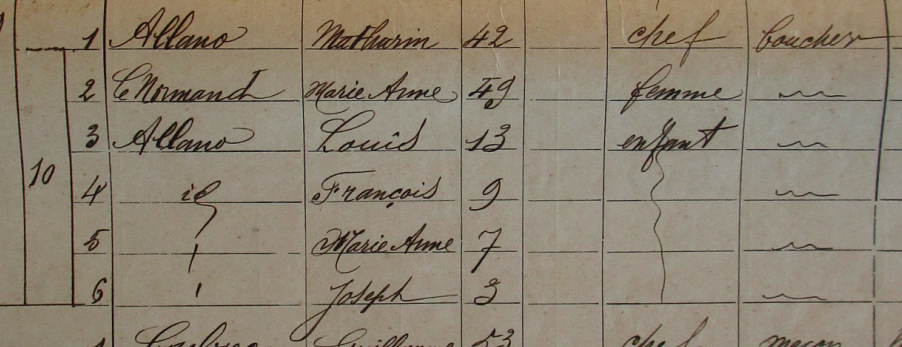 1 Allano Mathurin 42 chef boucher
2 Le Normand Marie Anne 49 femme
3 Allano Louis 13 enfant
10
4 id François 9
5 Marie Anne 7
6 Joseph 3
1 Guillaume 53 chef maçon